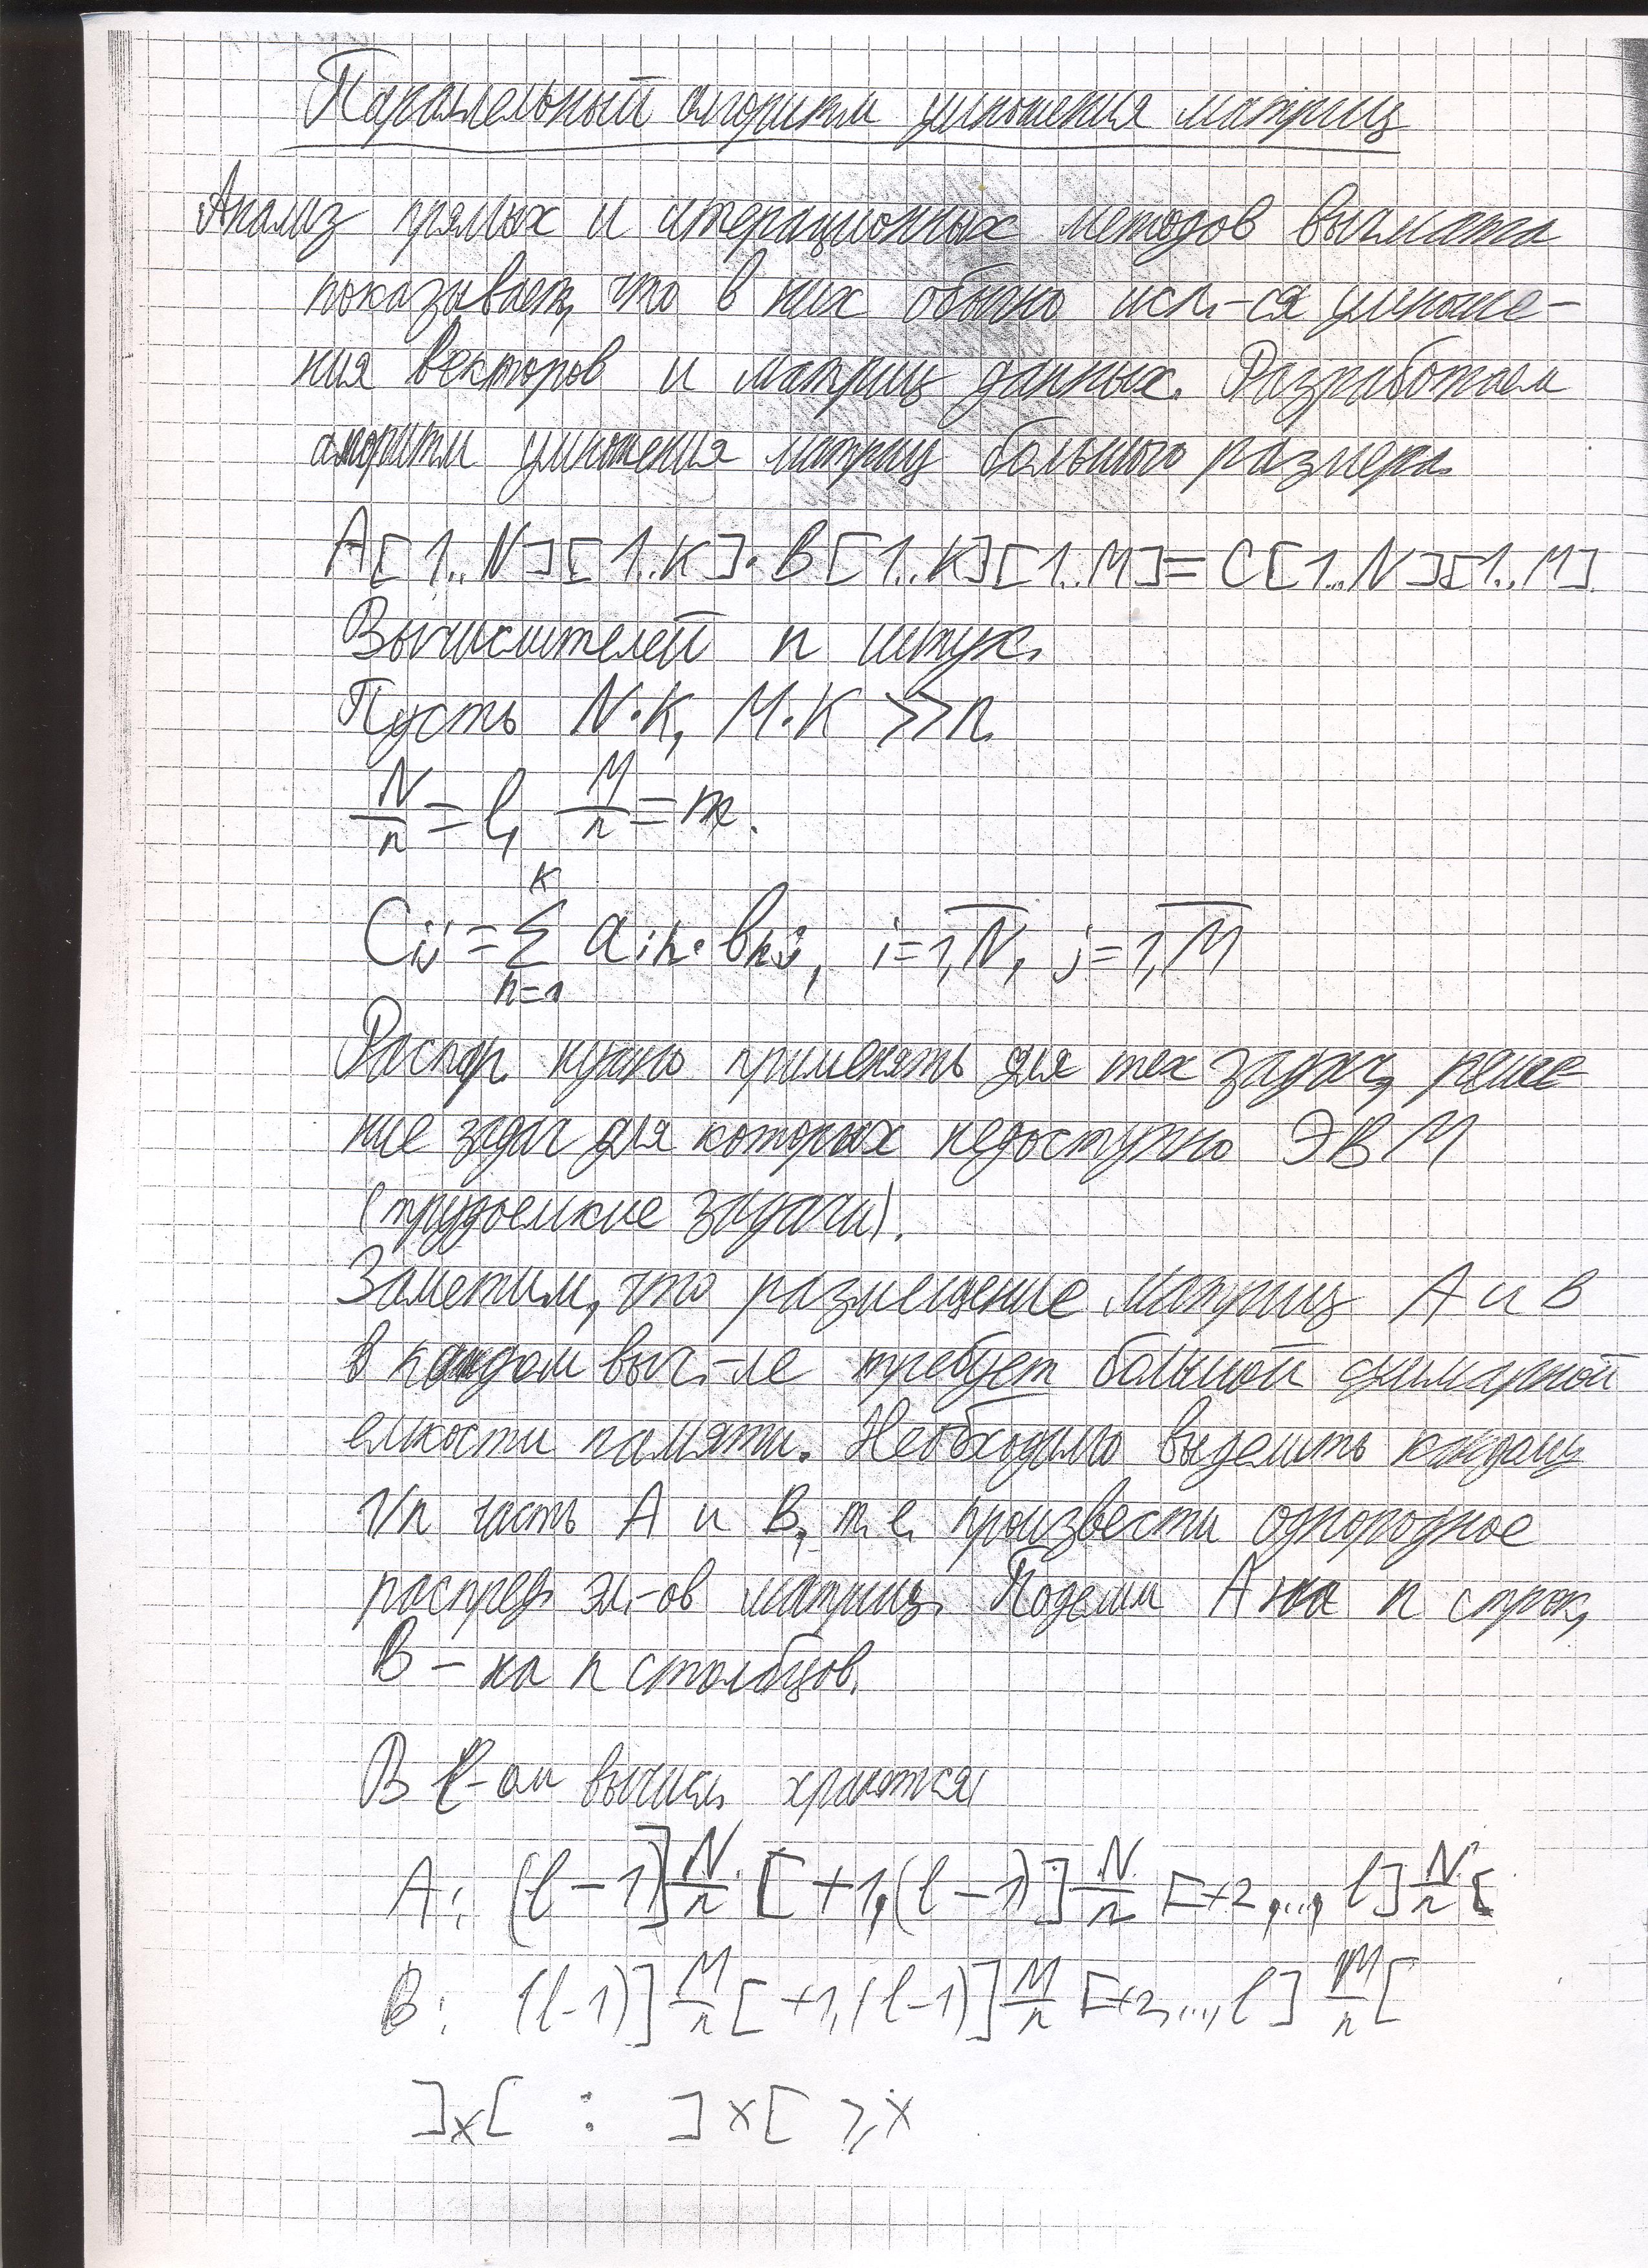 Параллельный алгоритм умножения матриц
Анализ прямых и итерационных методов вычмата
показывает, что в них обычно исп.-ся умноже-
ния векторов и матриц данных. Разработаем
алгоритм умножения матриц большого размера.
A[1..N][1..K]·B[1..K][1..M]=C[1..N][1..M].
Вычислителей n штук.
Пусть N·K, M·K >> n.
N/n = l, M/n = m.
Cij = Σ aih·bhj, i=1,N, j=1,M
K
h=1
Распар. нужно применять для тех задач, реше-
ние задач для которых недоступно ЭВМ
(трудоемкие задачи).
Заметим, что размещение матриц A и B
в каждом выч.-ле требует большой суммарной
емкости памяти. Необходимо выделить каждому
1/n часть A и B, т.е. произвести однородное
распред. эл.-ов матриц. Поделим A на n строк,
B – на n столбцов.
В l-ом вычисл. хранятся:
A: (l-1)]N/n[+1,(l-1)]N/n[+2,..., l]N/n[
B: (l-1)]M/n[+1,(l-1)]M/n[+2,...,l]M/n[
]x[ : ]x[ ⩾ x